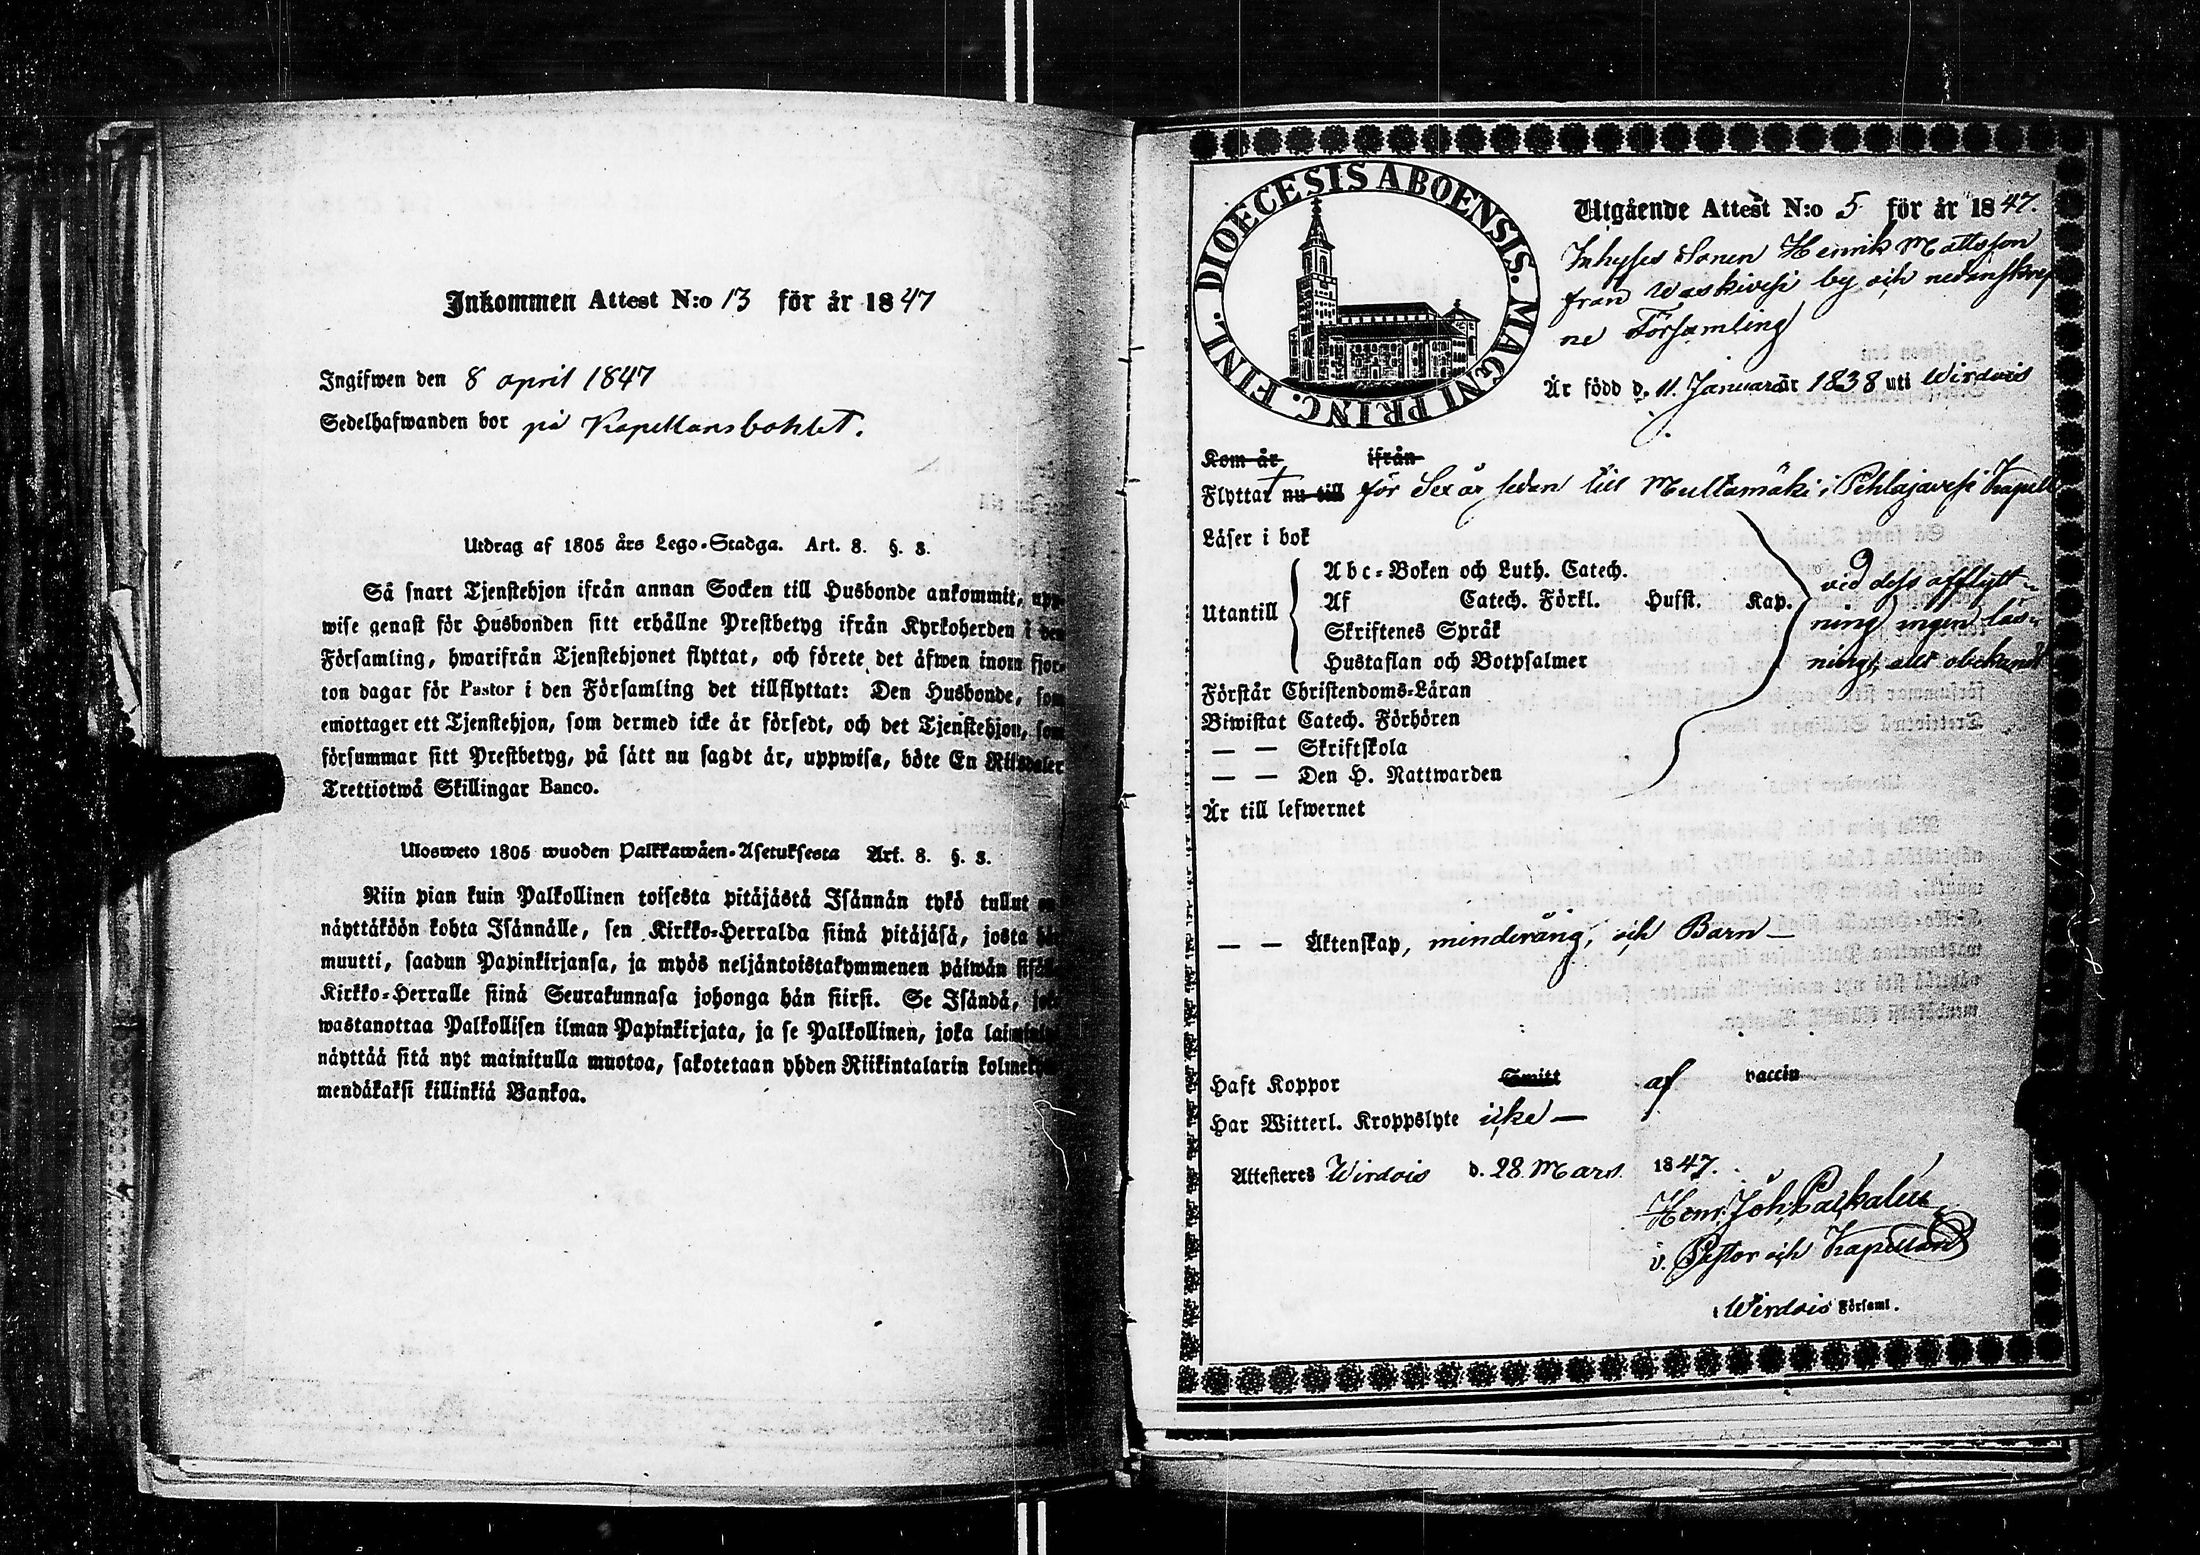 Inkommen Attest N:o 13 för år 1847
Ingifwen den 8 april 1847
Sedelhafwanden bor på Kapellansbohlet.
Utdrag af 1805 års Lego-Stadga. Art. 8. §. 3.
Så snart Tjenstehjon ifrån annan Socken till Husbonde ankommit, upp-
wise genast för Husbonden sitt erhållne Prestbetyg ifrån Kyrkoherden i den
Församling, hwarifrån Tjenstehjonet flyttat, och förete det äfwen inom fjor-
ton dagar för Pastor i den Församling det tillflyttat: Den Husbonde, som
emottager ett Tjenstehjon, som dermed icke är försedt, och det Tjenstehjon, som
försummar sitt Prestbetyg, på sätt nu sagdt är, uppwisa, böte En Riksdaler
Trettiotwå Skillingar Banco.
Ulosweto 1805 wuoden Palkkawäen-Asetuksesta Art. 8. §. 3.
Niin pian kuin Palkollinen toisesta pitäjästä Isännän tykö tullut on
näyttäköön kohta Isännälle, sen Kirkko-Herralda siinä pitäjäsä, josta hän
muutti, saadun Papinkirjansa, ja myös neljäntoistakymmenen päiwän sisällä
Kirkko-Herralle siinä Seurakunnasa johonga hän siirsi. Se Isändä, joka
wastanottaa Palkollisen ilman Papinkirjata, ja se Palkollinen, joka laiminlyö
näyttää sitä nyt mainitulla muotoa, sakotetaan yhden Riikintalarin kolmekym-
mendäkaksi killinkiä Bankoa.
DIOECESIS ABOENSIS. MAGNI PRINC. FINL.
Utgående Attest N:o 5 för år 1847.
Inhyses Sonen Henrik Mattsson
från Waskivesi by och nedanskref
ne Församling
Är född d. 11. Januarii år 1838 uti Wirdois
Kom år ifrån
Flyttat nu till för Sex år sedan till Multamäki i Pihlajavesi Kapell
Läser i bok
Utantill
Abc-Boken och Luth. Catech.
Af Catech. Förkl. Husst. Kap.
Skriftenes Språk
Hustaflan och Botpsalmer
vid dess afflytt-
ning ingen läs-
ning, allt obekandt
Förstår Christendoms-Läran
Biwistat Catech. Förhören
— — Skriftskola
— — Den H. Nattwarden
Är till lefwernet
— — Äktenskap, minderårig, och Barn —
Haft Koppor Smitt af vaccin
Har Witterl. Kroppslyte icke —
Attesteres Wirdois d. 28 Mars 1847.
Henr. Joh.
v. Pastor och Kapellan
i Wirdois Församl.